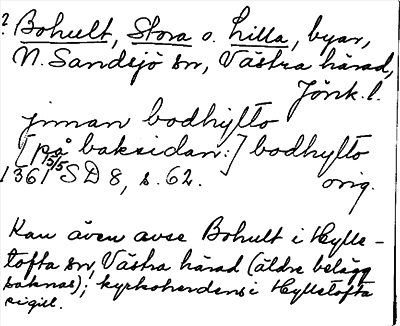 ? Bohult, Stora o. Lilla, byar,
N. Sandsjö sn, Västra härad,
Jönk. l.
jnnan bodhylto
[på baksidan:] bodhylto
1361 15/5 SD 8, s. 62. orig.
Kan även avse Bohult i Hylle-
tofta sn, Västra härad (äldre belägg
saknas); kyrkoherden i Hylletofta
sigill.